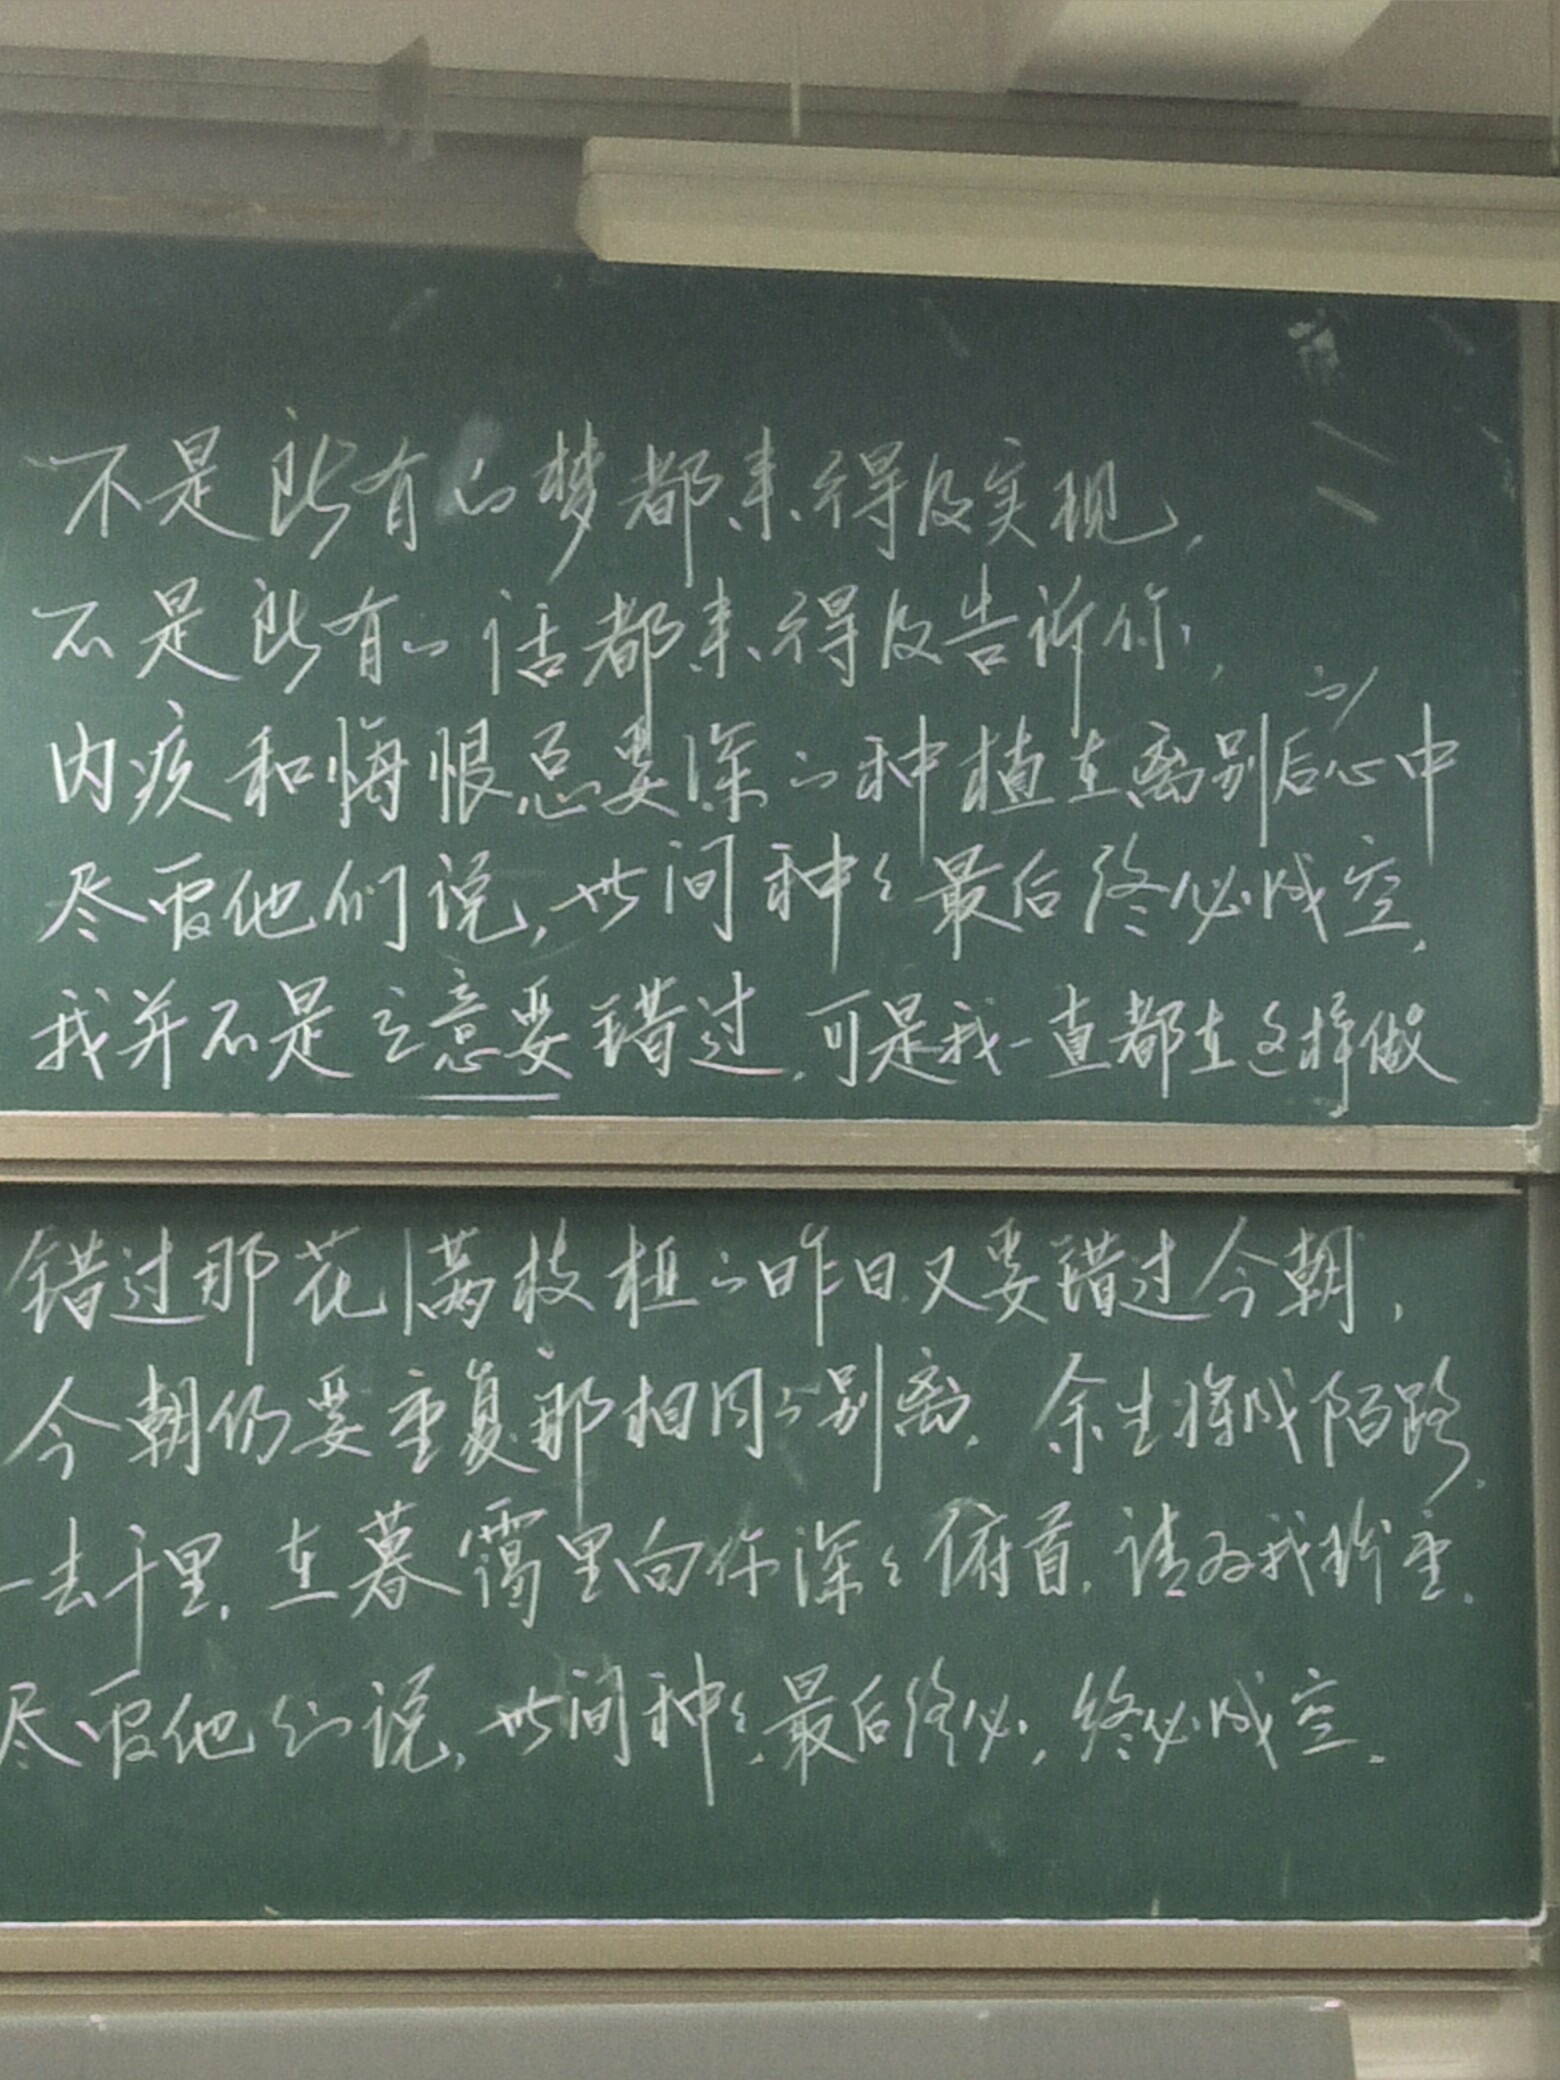 不是所有的梦都来得及实现，
不是所有的话都来得及告诉你，
内疚和悔恨总要深的种植在离别后的心中
尽管他们说，世间种々最后终必成空，
我并不是立意要错过，可是我一直都在这样做
错过那花满枝桠的昨日又要错过今朝，
今朝仍要重复那相同的别离，余生将成陌路，
一去千里，在暮霭里向你深々俯首，请为我珍重。
尽管他们说，世间种々，最后终必，终必成空。